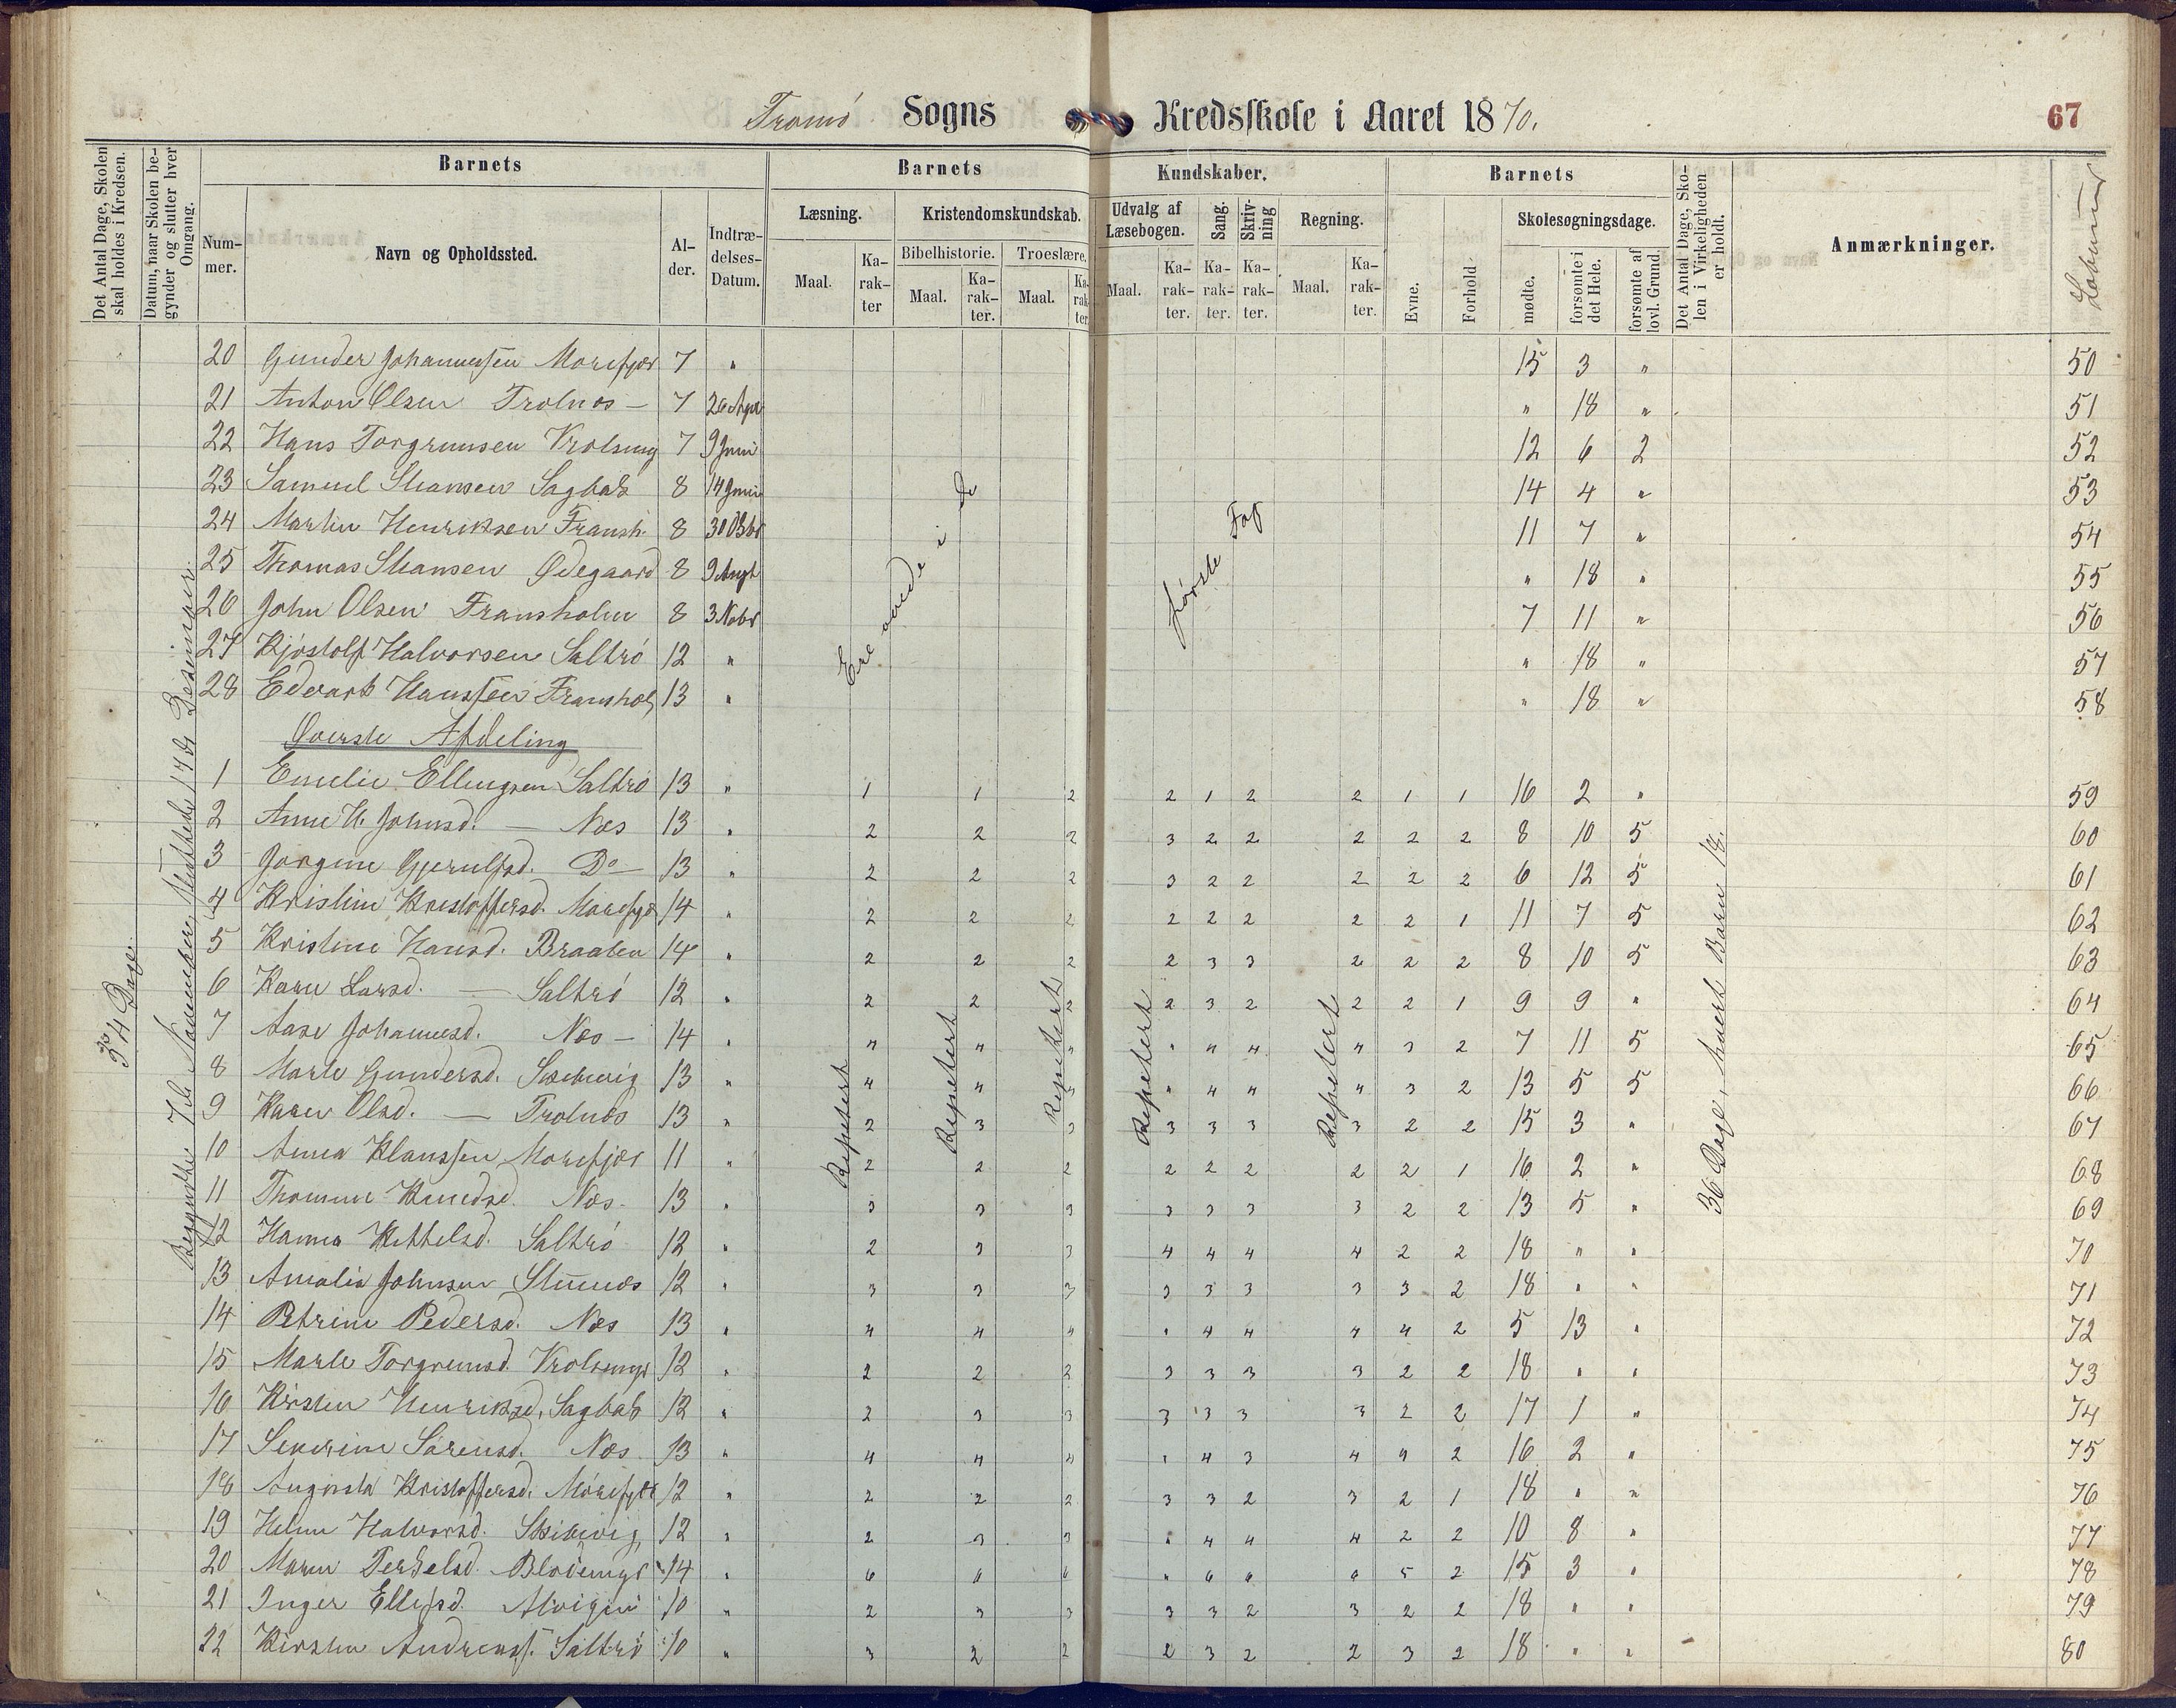 Tromø Sogns Kredsskole i Aaret 1870.
67
Det Antal Dage, Skolen skal holdes i Kredsen.
Datum, naar Skolen begynder og slutter hver Omgang.
Barnets
Nummer.
Navn og Opholdssted.
Alder.
Indtrædelses-Datum.
Barnets Kundskaber.
Læsning.
Maal.
Karakter
Kristendomskundskab.
Bibelhistorie.
Maal.
Karakter.
Troeslære.
Maal.
Karakter.
Udvalg af Læsebogen.
Maal.
Karakter.
Sang.
Karakter.
Skrivning
Karakter.
Regning.
Maal.
Karakter.
Barnets
Evne.
Forhold.
Skolesøgningsdage.
mødte.
forsømte i det Hele.
forsømte af lovl. Grund.
Det Antal Dage, Skolen i Virkeligheden er holdt.
Anmærkninger.
20 Gunder Johannessen Morefjær 7 " 15 3 " 50
21 Anton Olsen Trolnæs 7 " 18 " 51
22 Hans Torgrimsen 7 9 Juni 12 6 2 52
23 Samuel Sagbak 8 14 Juni 14 4 " 53
24 Martin Henriksen Fransh. 8 11 7 " 54
25 Thomas Ødegaard 8 9 Augt " 18 " 55
26 John Olsen Fransholm 8 3 Nobr 7 11 " 56
27 Halvorsen Saltrø 12 " " 18 " 57
28 Edvart Hanssen 13 " " 18 " 58
Ere i de første Fag
Øverste Afdeling
1 Emelie Ellingsen Saltrø 13 " 1 1 2 2 1 2 2 1 1 16 2 " 59
2 Anne H. Johnsd. — Næs 13 " 2 2 2 3 2 2 2 2 2 8 10 5 60
3 Jorgine Do 13 " 2 2 2 3 2 2 2 2 2 6 12 5 61
4 Kristine Kristoffersd. 14 " 2 2 2 2 2 2 2 2 1 11 7 5 62
5 Kristine Hansd. Braaten 14 " 2 2 2 2 3 3 2 2 2 8 10 5 63
6 Karen Larsd. — Saltrø 12 " 2 2 2 2 3 2 2 2 1 9 9 " 64
7 Aase Johannesd. Næs — 14 " 4 4 4 " 4 4 4 3 2 7 11 5 65
8 Marte Gundersd. 13 " 4 4 " 4 4 4 3 2 13 5 5 66
9 Karen Olsd. — Trolnæs 13 " 2 3 3 3 3 3 3 2 2 15 3 " 67
10 Anna Klaussen Morefjær 11 " 2 2 2 2 2 2 2 2 1 16 2 " 68
11 Thomine Knudsd. Næs. 13 " 3 3 3 3 3 3 3 2 2 13 5 " 69
12 Hanna Kettelsd. Saltrø 12 " 2 3 3 4 4 4 4 2 2 18 " " 70
13 Amalia Johnsen 12 " 3 3 3 3 3 3 3 3 2 18 " " 71
14 Petrine Pedersd. Næs 13 " 4 4 4 " 4 4 4 4 2 5 13 " 72
15 Marte Torgrimsd. 12 " 2 2 2 3 3 3 3 2 2 18 " " 73
16 Kirsten Henriksd. Sagbak 12 " 2 3 3 3 3 3 3 2 2 17 1 " 74
17 Severine Sørensd. Næs 13 " 4 4 4 " 4 3 4 4 2 16 2 " 75
18 Augusta Kristoffersd. 12 " 2 2 2 3 3 2 3 2 1 18 " " 76
19 Helene Halvorsd. 12 " 2 3 3 " 4 4 4 2 2 10 8 " 77
20 Maren Terkelsd. 14 " 6 6 6 " 6 6 6 5 2 15 3 " 78
21 Inger Ellefsd. 10 " 2 3 3 3 3 2 3 2 2 18 " " 79
22 Kirsten Saltrø 10 " 3 2 2 2 3 2 2 3 2 18 " " 80
34 Dage.
Begyndte 7de November, sluttede 17de December.
Repetert
Repetert
Repetert
Repetert
Repetert
36 Dage, hvert Barn 18.